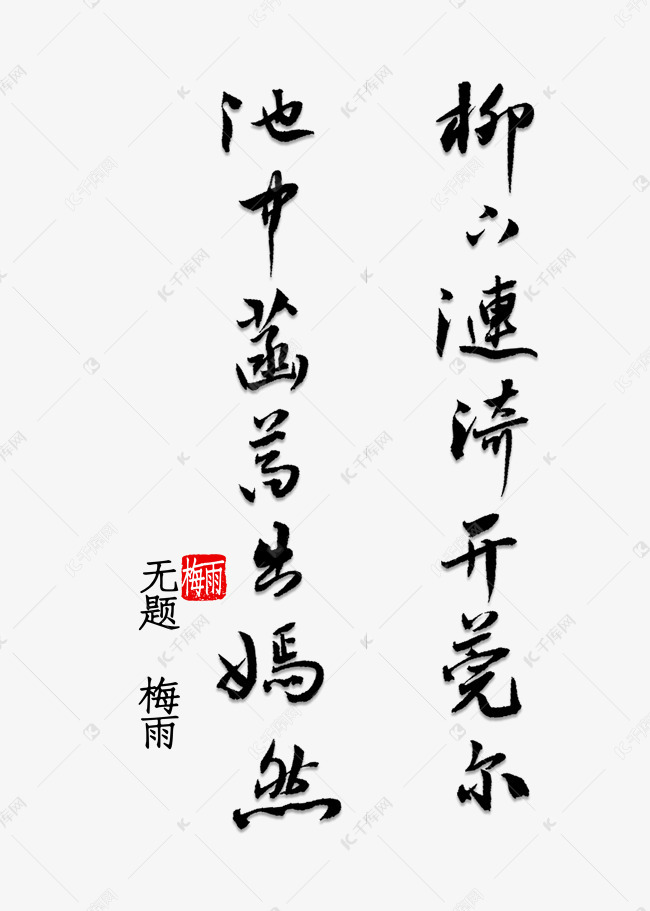 柳下漣漪开莞尔
池中菡萏出嫣然
无题 梅雨
梅雨
千库网